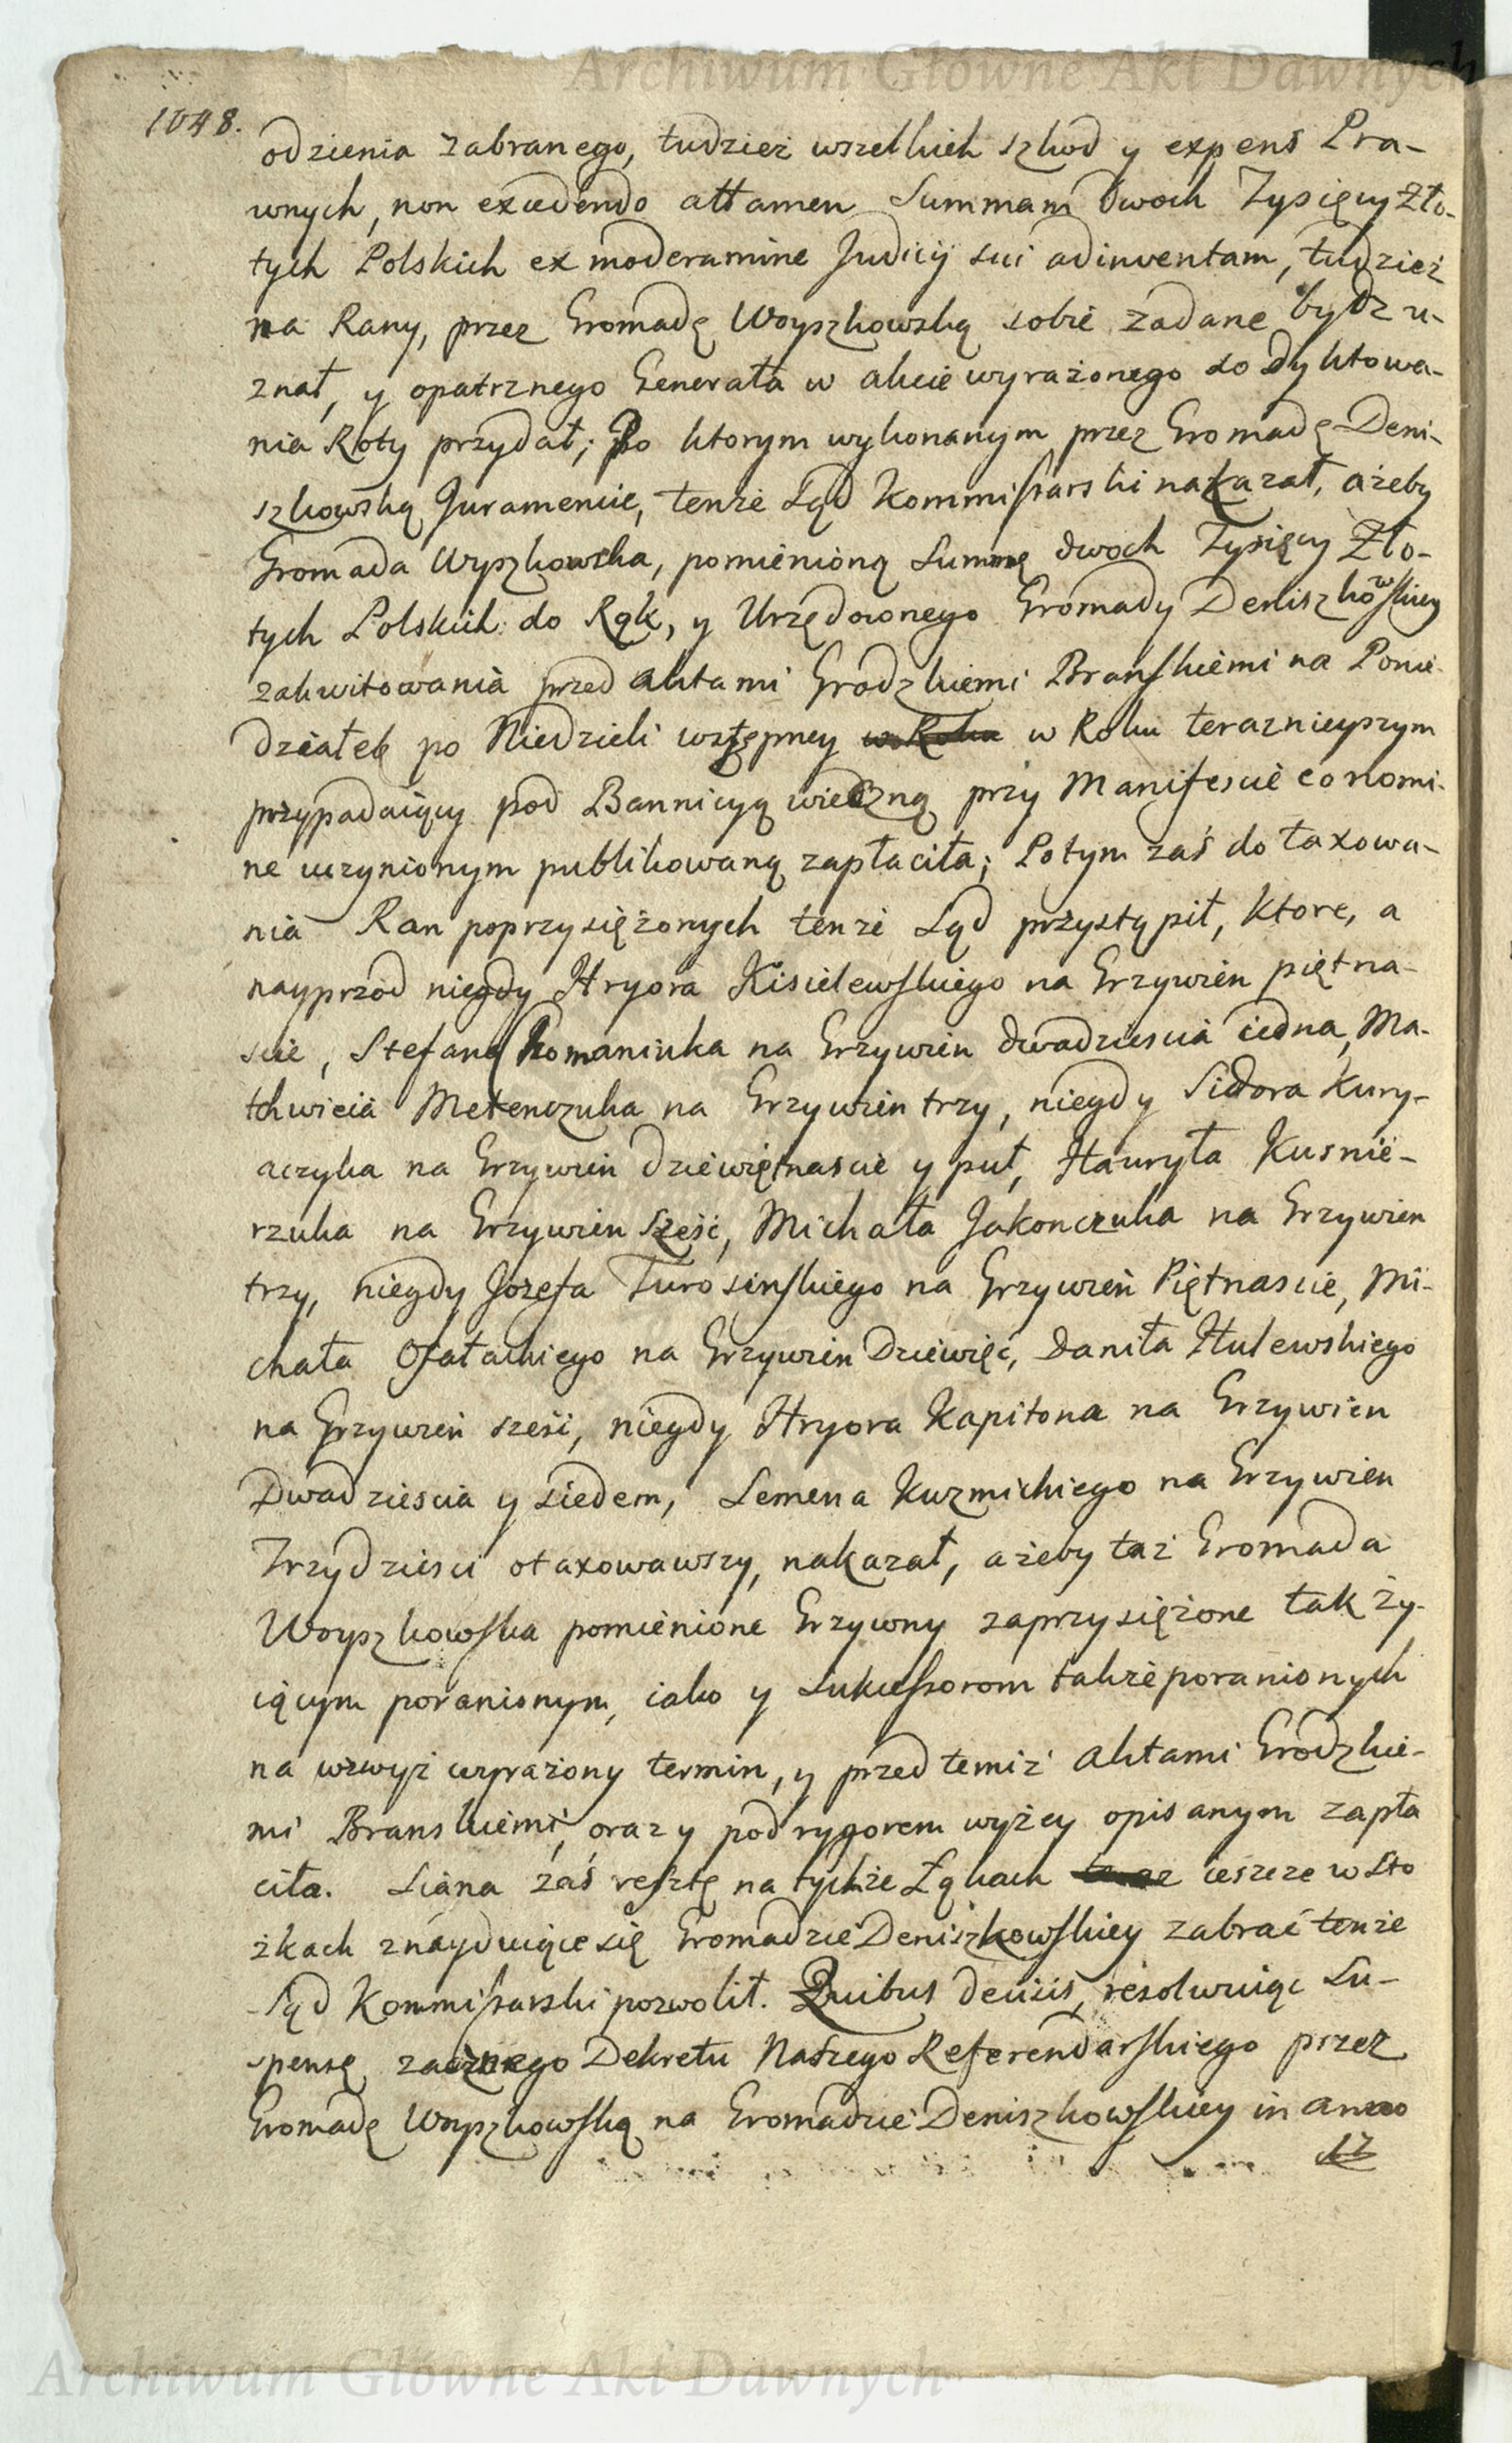 Archiwum Główne Akt Dawnych
1048.
odzienia zabranego, tudzież wszelkich szkod y expens Pra-
wnych, non excedendo attamen Summam dwoch Tysięcy Zło-
tych Polskich ex moderamine Judicij sui adinventam, tudzież
na Rany, przez Gromadę Woyszkowską sobie zadane bydz u-
znał, y opatrznego Generała w akcie wyrażonego do dyktowa-
nia Roty przydał; Po ktorym wykonanym przez Gromadę Deni-
szkowską Juramencie, tenże Sąd Kommissarski nakazał, ażeby
Gromada Wyszkowska, pomienioną Summę dwoch Tysięcy Zło-
tych Polskich do Rąk, y Urzędowego Gromady Deniszkowskiey
zakwitowania przed aktami Grodzkiemi Branskiemi na Ponie-
działek po Niedzieli wstępney w Roku w Roku teraznieyszym
przypadaiący pod Bannicyą wieczną przy Manifescie eo nomi-
ne uczynionym publikowaną zapłaciła; Potym zaś do taxowa-
nia Ran poprzysiężonych tenże Sąd przystąpił, ktore, a
nayprzod niegdy Hryora Kisielewskiego na Grzywien piętna-
scie, Stefana Romaniuka na Grzywien dwadziescia iedna, Ma-
thwieia Metenczuka na Grzywien trzy, niegdy Sidora Kury-
aczyka na Grzywien dziewiętnascie y puł, Hauryła Kusnie-
rzuka na Grzywien Sześć, Michała Jakonczuka na Grzywien
trzy, niegdy Jozefa Turosinskiego na Grzywien Piętnascie, Mi-
chała Ofatackiego na Grzywien Dziewięć, Daniła Hulewskiego
na Grzywien sześć, niegdy Hryora Kapitona na Grzywien
Dwadziescia y siedem, Semena Kuzmickiego na Grzywien
Trzydziesci otaxowawszy, nakazał, ażeby taż Gromada
Woyszkowska pomienione Grzywny zaprzysiężone tak ży-
iącym poranionym, iako y Sukcessorom także poranionych
na wzwyż wyrażony termin, y przed temiż Aktami Grodzkie-
mi Branskiemi, oraz y pod rygorem wyżey opisanym zapła
ciła. Siana zaś resztę na tychże Łąkach ieszcze w Sto
żkach znayduiące się Gromadzie Deniszkowskiey zabrać tenże
Sąd Kommissarski pozwolił. Quibus decisis, rezolwuiąc Su-
spensę zaocznego Dekretu Naszego Referendarskiego przez
Gromadę Woyszkowską na Gromadzie Deniszkowskiey in anno
17
Archiwum Główne Akt Dawnych